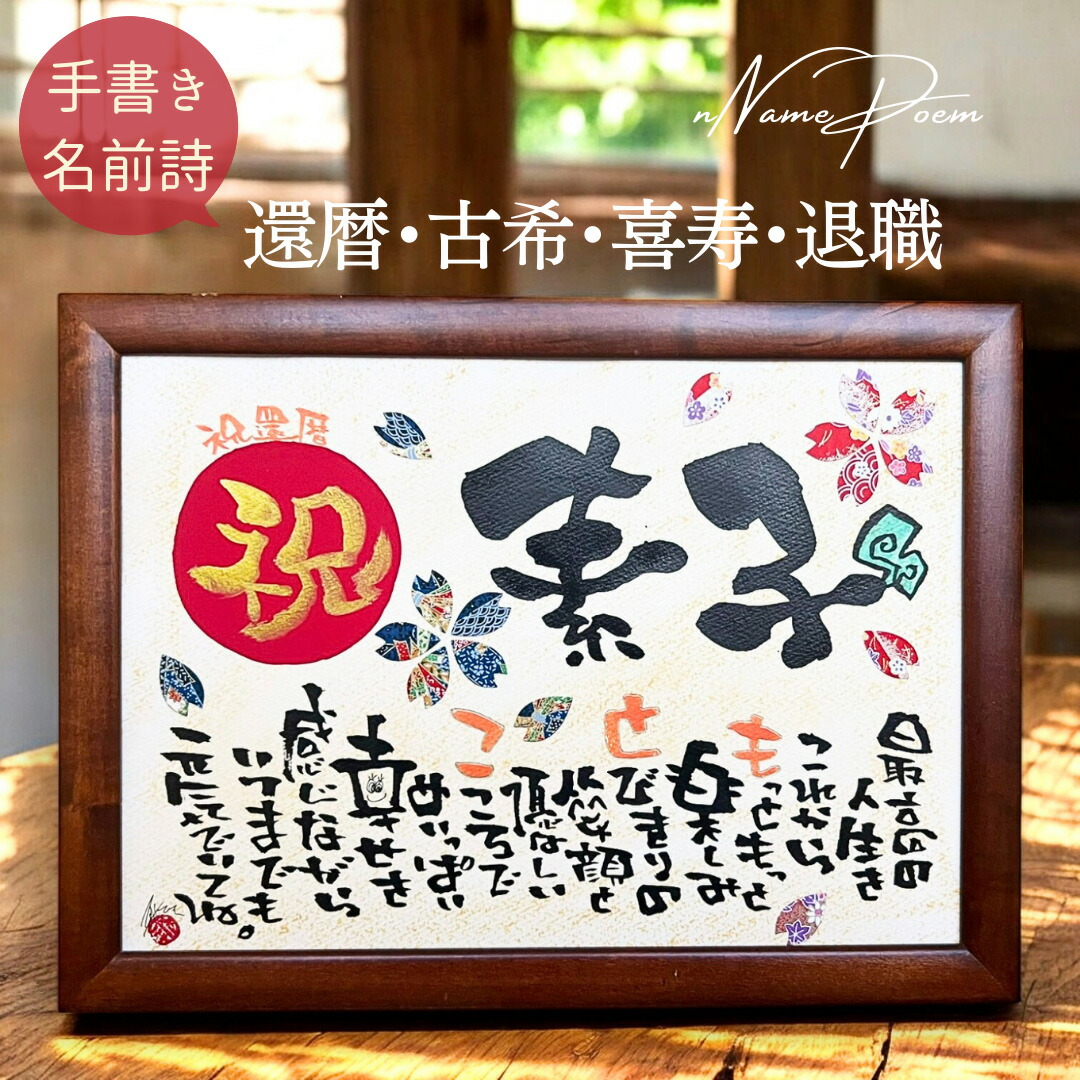 手書き
名前詩
nNamePoem
還暦・古希・喜寿・退職
祝還暦
祝
素子
最高の
人生を
これから
もっともっと
楽しみ
とびきりの
笑顔と
優しい
こころで
めいっぱい
幸せを
感じながら
いつまでも
元気でいてね。